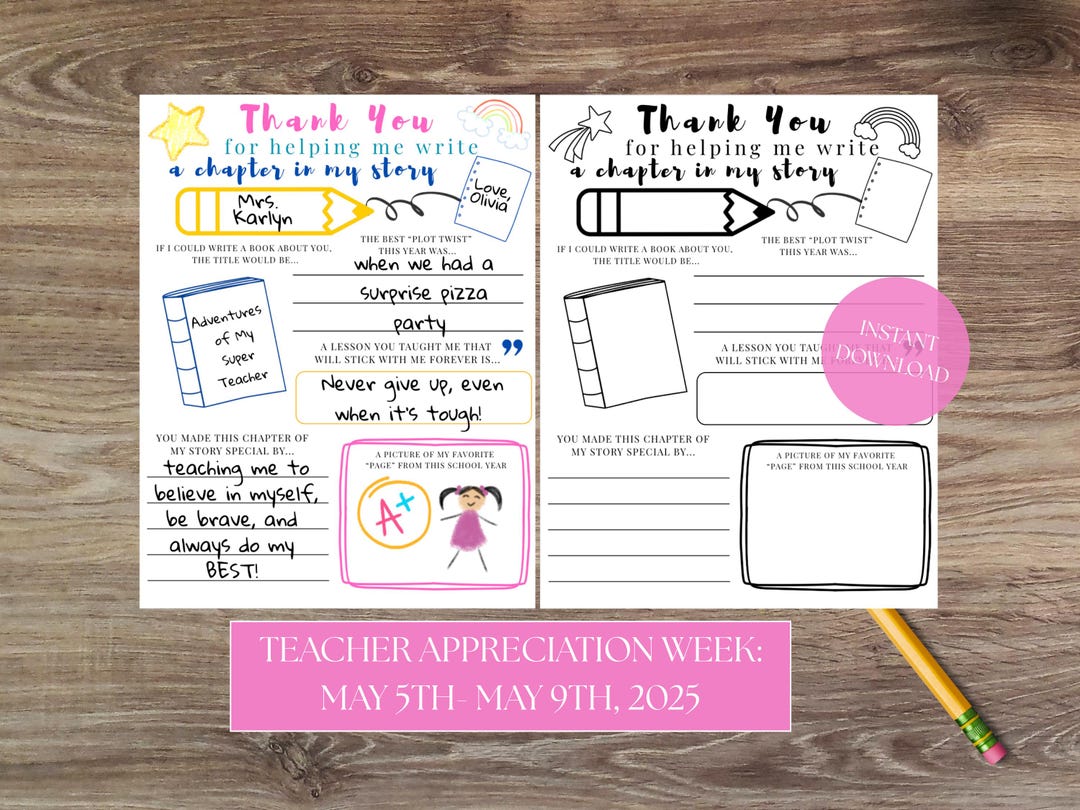 Thank You
for helping me write
a chapter in my story
Mrs.
Karlyn
Love,
Olivia
IF I COULD WRITE A BOOK ABOUT YOU,
THE TITLE WOULD BE...
THE BEST "PLOT TWIST"
THIS YEAR WAS...
when we had a
surprise pizza
party
Adventures
of My
Super
Teacher
A LESSON YOU TAUGHT ME THAT
WILL STICK WITH ME FOREVER IS...
Never give up, even
when it's tough!
YOU MADE THIS CHAPTER OF
MY STORY SPECIAL BY...
teaching me to
believe in myself,
be brave, and
always do my
BEST!
A PICTURE OF MY FAVORITE
"PAGE" FROM THIS SCHOOL YEAR
A+
Thank You
for helping me write
a chapter in my story
IF I COULD WRITE A BOOK ABOUT YOU,
THE TITLE WOULD BE...
THE BEST "PLOT TWIST"
THIS YEAR WAS...
A LESSON YOU TAUGHT ME THAT
WILL STICK WITH ME FOREVER IS...
INSTANT
DOWNLOAD
YOU MADE THIS CHAPTER OF
MY STORY SPECIAL BY...
A PICTURE OF MY FAVORITE
"PAGE" FROM THIS SCHOOL YEAR
TEACHER APPRECIATION WEEK:
MAY 5TH- MAY 9TH, 2025